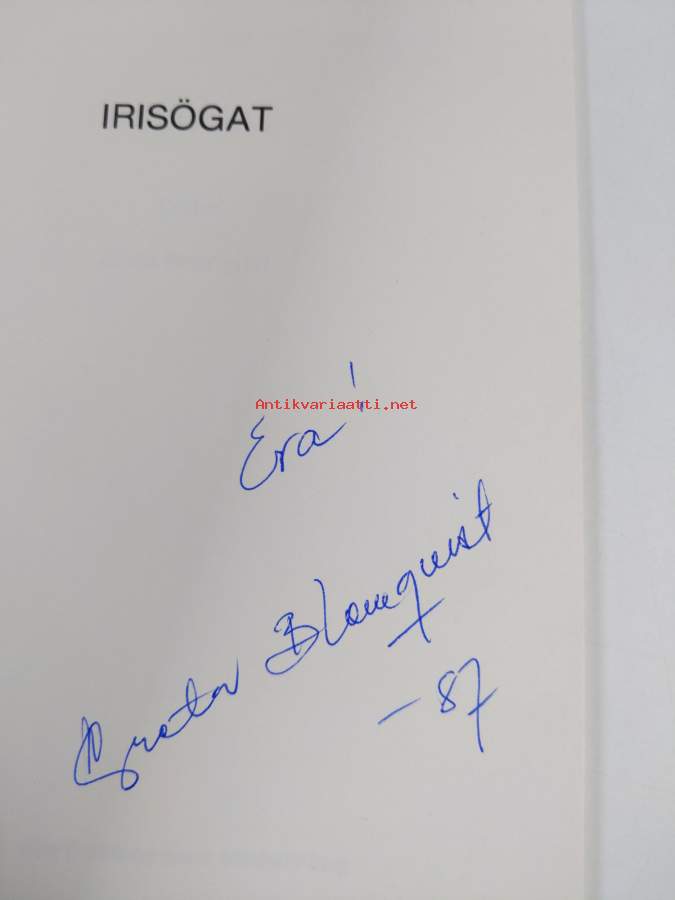 IRISÖGAT
Antikvariaatti.net
Eva!
Greta Blomqvist
-87